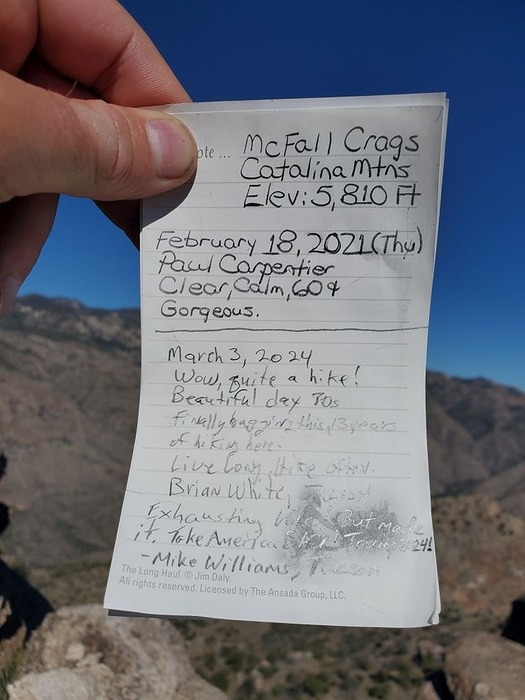 ote ... McFall Crags
Catalina Mtns
Elev: 5,810 Ft
February 18, 2021 (Thu)
Paul Carpentier
Clear, Calm, 60°
Gorgeous.
March 3, 2024
Wow, quite a hike!
Beautiful day 70s
Finally bagging this, 13 years
of hiking here.
Live long, hike often.
Brian White, Tucson
Exhausting But made
it. Take America BACK! Trump 2024!
- Mike Williams, Tucson
The Long Haul © Jim Daly.
All rights reserved. Licensed by The Ansada Group, LLC.